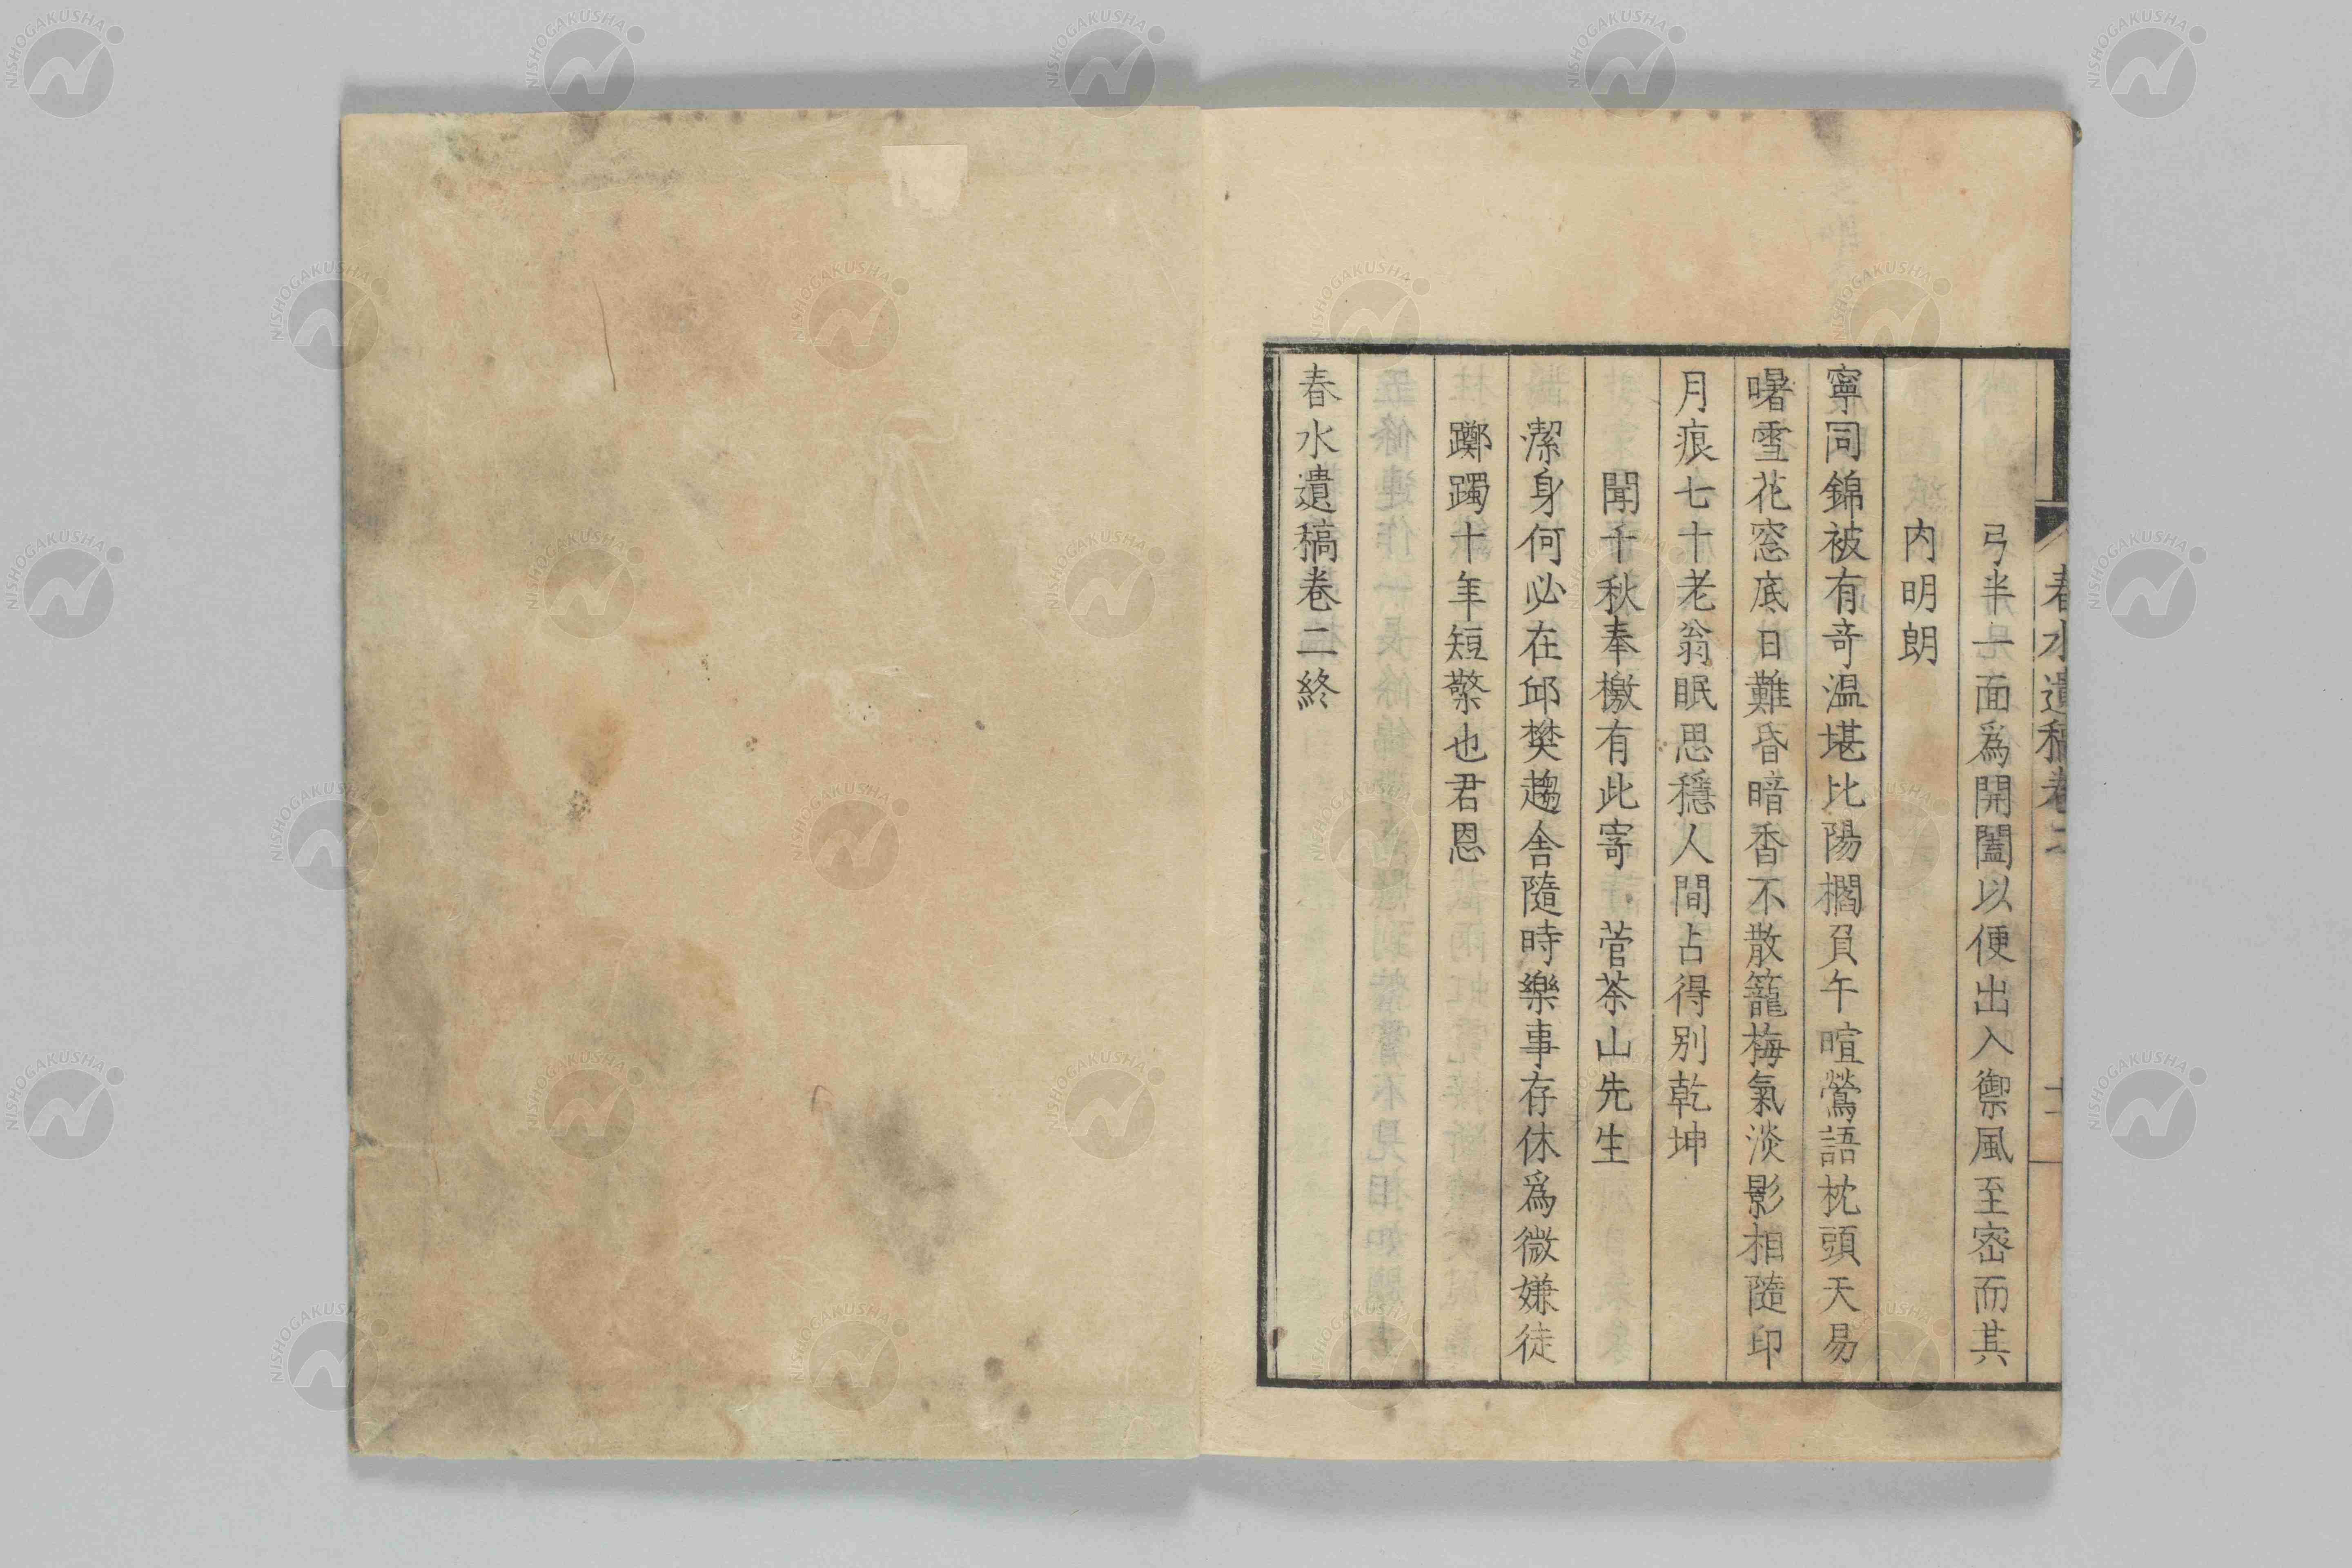 春水遺稿卷二
十二
弓半一面爲開闔以便出入禦風至密而其
内明朗
寧同錦被有奇温堪比陽櫊負午暄鶯語枕頭天易
曙雪花窓底日難昏暗香不散籠梅氣淡影相隨印
月痕七十老翁眠思穩人間占得别乾坤
聞千秋奉檄有此寄 菅茶山先生
潔身何必在邱樊趨舎隨時樂事存休爲微嫌徒
躑躅十年短檠也君恩
春水遺稿卷二終
NISHOGAKUSHA